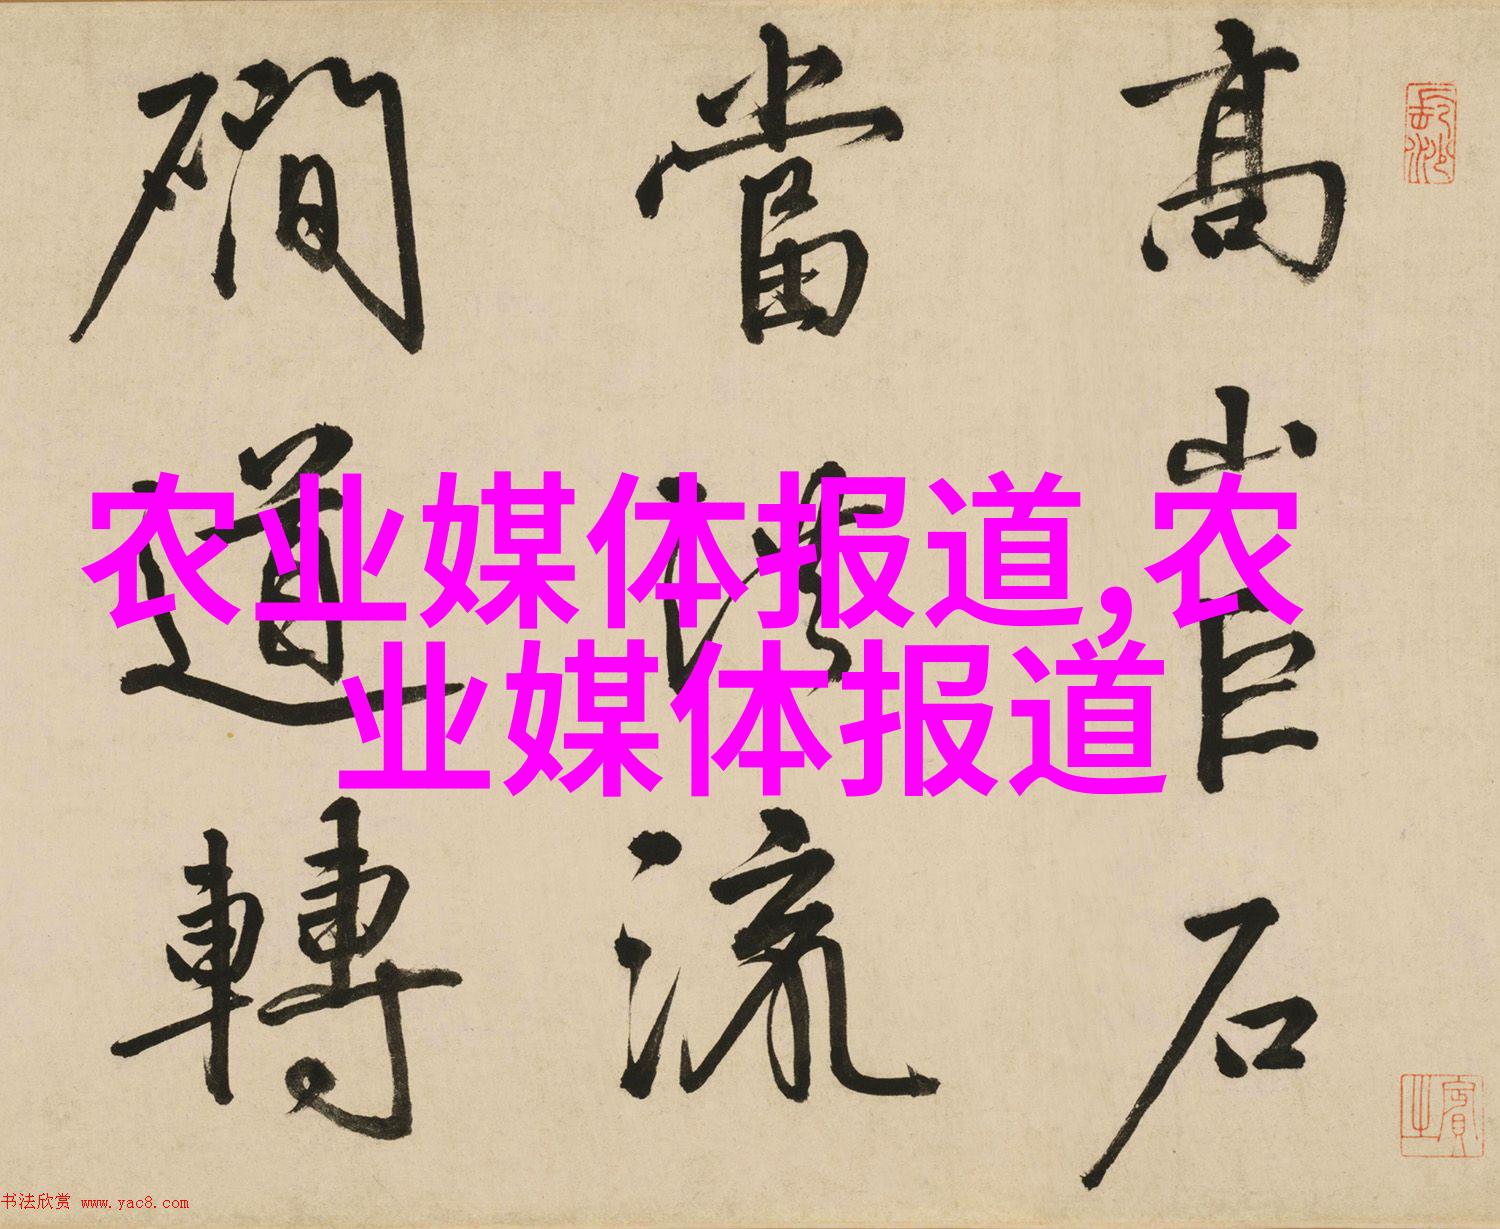 高岩石
當流
磵道轉
农业媒体报道,农
业媒体报道
书法欣赏 www.yac8.com